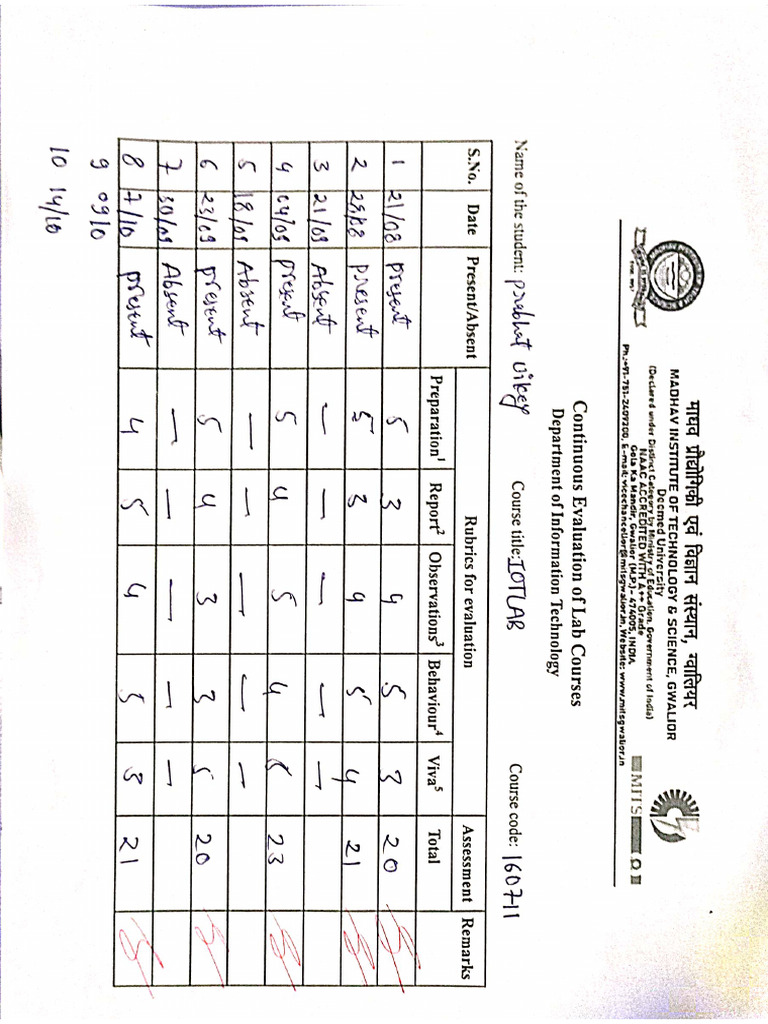 माधव प्रौद्योगिकी एवं विज्ञान संस्थान, ग्वालियर
MADHAV INSTITUTE OF TECHNOLOGY & SCIENCE, GWALIOR
Deemed University
(Declared under Distinct Category by Ministry of Education, Government of India)
NAAC ACCREDITED WITH A++ Grade
Gola Ka Mandir, Gwalior (M.P.) - 474005, INDIA
Ph.:+91-751-2409300, E-mail: vicechancellor@mitsgwalior.in, Website: www.mitsgwalior.in
MITS
Continuous Evaluation of Lab Courses
Department of Information Technology
Name of the student: Prabhat Uikey Course title: IOTLAB Course code: 160711
S.No. Date Present/Absent Rubrics for evaluation Assessment Remarks
Preparation1 Report2 Observations3 Behaviour4 Viva5 Total
1 21/08 present 5 3 4 5 3 20
2 present 5 3 4 5 4 21
3 21/09 Absent — — — — —
4 04/09 present 5 4 5 4 5 23
5 18/09 Absent — — — — —
6 23/09 present 5 4 3 3 5 20
7 30/09 Absent — — — — —
8 7/10 present 4 5 4 5 3 21
9 09/10
10 14/10